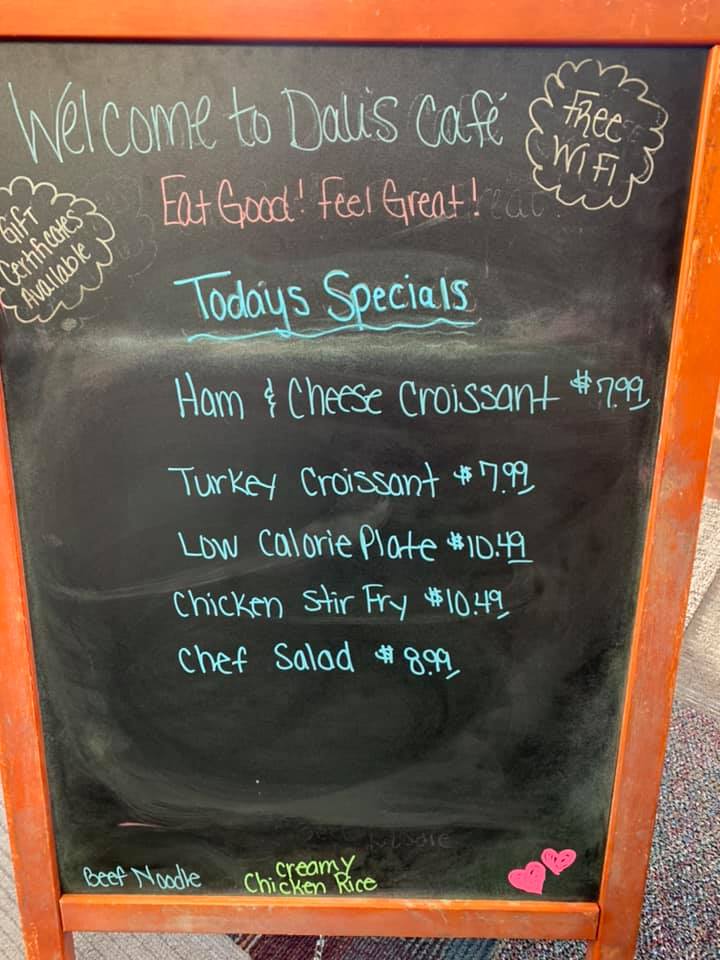 Welcome to Dali's Café
Free
WiFi
Eat Good! Feel Great!
Gift
Certificates
Available
Todays Specials
Ham & Cheese Croissant $7.99
Turkey Croissant $7.99
Low Calorie Plate $10.49
Chicken Stir Fry $10.49
Chef Salad $8.99
Beef Noodle
Creamy
Chicken Rice